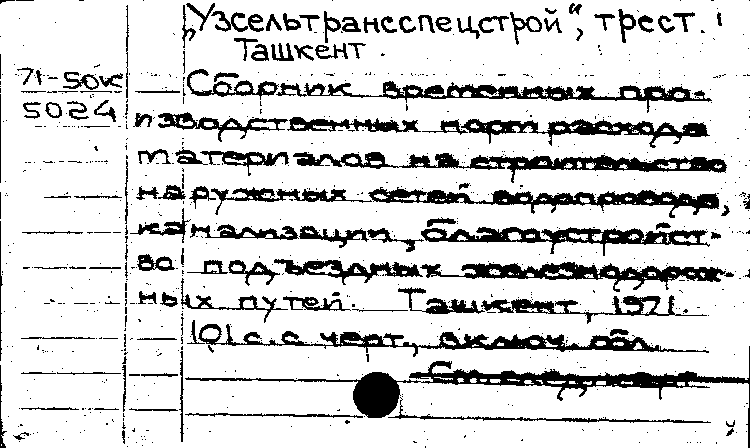 „Узсельтрансспецстрой“, трест.
Ташкент.
71-50к Сборник временных про-
5024 изводственных норм расхода
материалов на строительство
наружных сетей водопровода,
канализации, благоустройст-
ва подъездных железнодорож-
ных путей. Ташкент, 1971.
101 с. с черт., включ. обл.
См. след. карт.